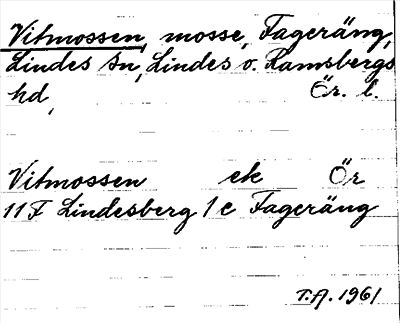 Vitmossen, mosse, Fageräng,
Lindes sn, Lindes o. Ramsbergs
hd, Ör. l.
Vitmossen ek Ör
11F Lindesberg 1c Fageräng
T.A. 1961